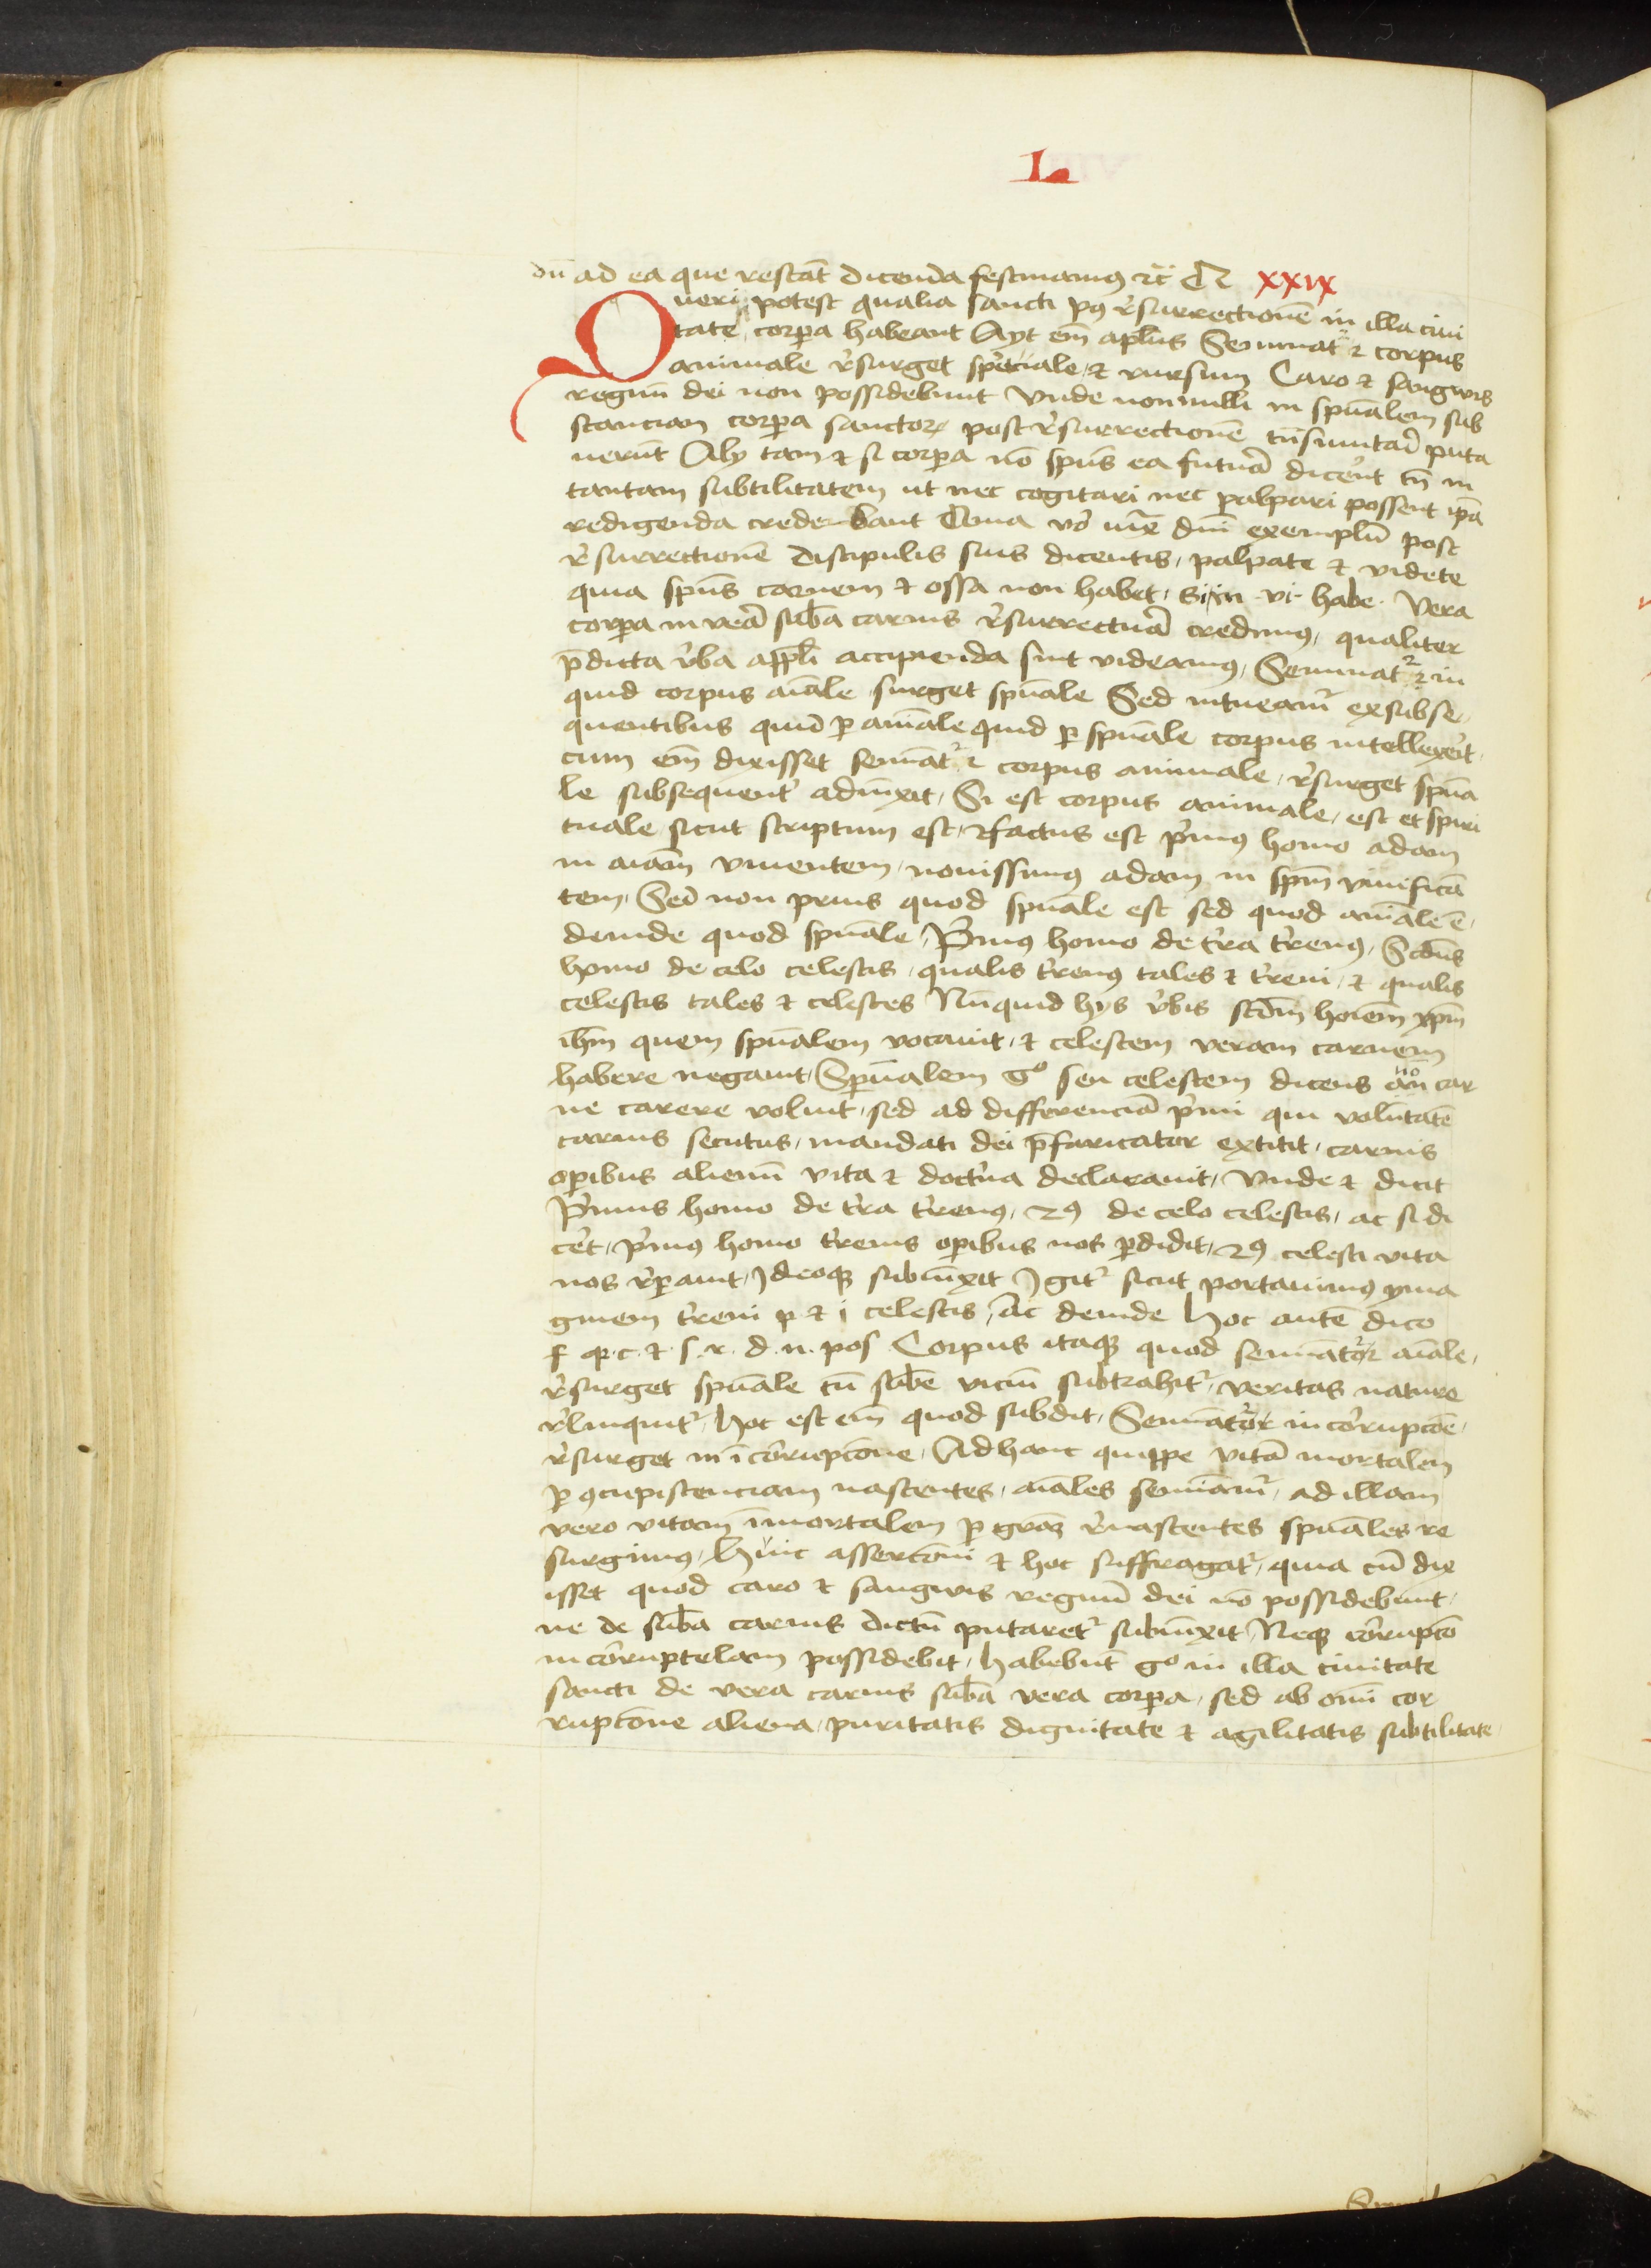 L
dū ad ea que restāt dicenda festinamus ⁊c̄ C͞ XXIX
Queri potest qualia sancti p9 r̄surrectionē in illa ciui
tate corpa habeant Ayt em̄ apl̄us Seminat᷑ corpus
animale r̄surget spirituale, ⁊ rursum Caro ⁊ sangwis
regnū dei non possidebunt Vnde nonnulli in spūalem sub
stanciam corpa sanctoꝝ post r̄surrectionē tn̄smutari puta
uerūt Alij tam ⁊ si corpa nō spūs ea futura dicerēt tn̄ in
tantam subtilitatem ut nec cogitari nec palpari possent ip̄a
redigenda crede bant Cōtra vō iux dn̄i exemplū post
r̄surrectionē discipulis suis dicentis, palpate ⁊ videte
quia spūs carnem ⁊ ossa non habet, si/in vi habe. Vera
corpa in verā sūba carnis r̄surrecturā credimus, qualiter
p̄dicta v̄ba appl̄i accipienda sint videamus, Seminat᷑ in
quid corpus aīale surget spūale Sed intueamr̄ exsubse
quentibus quid ꝑ aīale quid ꝑ spūale corpus intellexerit
cum em̄ dixisset semīat᷑ corpus animale, r̄surget spūa
le subsequent̄ adiūxit, Si est corpus animale, est et spiri
tuale sicut scriptum est, ⁊ factus est p̄mus homo adam
in aīam viuentem, nouissimus adam in spm̄ viuificā
tem, Sed non prius quod spūale est sed quod aīale ē,
deinde quod spūale, P̄mus homo de t̄ra t̄renus, Scd̄us
homo de celo celestis, qualis t̄renus tales ⁊ t̄reni, ⁊ qualis
celestis tales ⁊ celestes Nūquid hijs v̄bis scdm̄ hoīem xpm̄
ihm̄ quem spūalem vocauit, ⁊ celestem veram carnem
habere negauit, Spūalem gͦ seu celestem dicens nō car
ne carere voluit, sed ad differenciā p̄mi qui volūtatē
carnis secutus, mandati dei p̄faricator extitit, carnis
oꝑibus alienū vita ⁊ doct̄na declarauit, Vnde ⁊ dicit
P̄mus homo de t̄ra t̄renus, 29 de celo celestis, ac si di
cēt, p̄mus homo t̄renus oꝑibus nos ꝑdidit, 29 celesti vita
nos r̄ꝑauit, Ideoqꝫ subiūxit Igit᷑ sicut portauimus yma
ginem t̄reni p ⁊ i celestis, Ac deinde Hoc autē dico
f q. c. ⁊ s. r. d. n. pos Corpus itaqꝫ quod semīat᷑ aīale,
r̄surget spūale tū sūbe viciū subtrahit᷑, veritas nature
r̄linquit᷑, Hoc est em̄ quod subdit, Semīat᷑ in corrupcōe,
r̄surget in īcorrupcōne, Ad hanc quippe vitā mortalem
ꝑ ꝯcupiscenciam nascentes, aīales semīamr̄, ad illam
vero vitam īmortalem ꝑ grāꝫ r̄nascentes spūales re
surgimus, Huic assercōni ⁊ hoc suffragat᷑, quia cū dix
isset quod caro ⁊ sangwis regnū dei nō possidebunt,
ne de sūba carnis dictū putaret᷑ subiūxit Neqꝫ corrupcō
incorruptelam possidebit, Habebūt gͦ in illa ciuitate
sancti de vera carnis sūba vera corpa, sed ab om̄i cor
rupcōne aliena, puritatis dignitate ⁊ agilitatis subtilitate